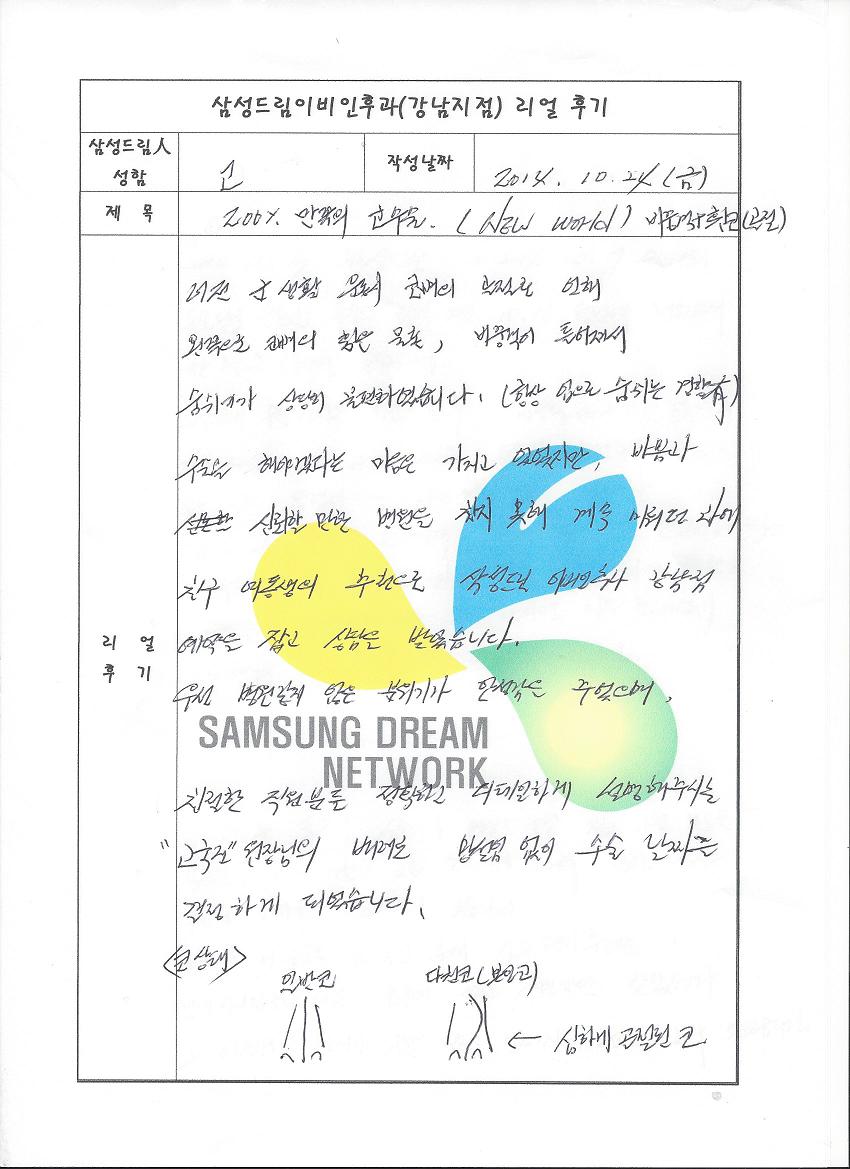 삼성드림이비인후과(강남지점) 리얼 후기
삼성드림人
성함
고
작성날짜
2014. 10. 24 (금)
제 목
200% 만족의 코수술. (NEW world) 비중격+휜코(골절)
군생활 코뼈의 골절로 인해
왼쪽으로 코뼈의 휨은 물론, 비중격이 틀어져서
숨쉬기가 상당히 불편하였습니다. (항상 입으로 숨쉬는 경향有)
수술을 해야겠다는 마음은 가지고 있었지만, 바쁨과
신뢰할 만한 병원을 찾지 못해 계속 미뤄던 차에
친구 여동생의 추천으로 삼성드림 이비인후과 강남점
예약을 잡고 상담을 받았습니다.
우선 병원같지 않은 분위기가 안정감을 주었으며,
SAMSUNG DREAM
NETWORK
친절한 직원분들 정확하고 디테일하게 설명해주시는
원장님의 배려로 망설임 없이 수술 날짜를
결정하게 되었습니다.
리 얼
후 기
<코상태>
일반코 다친코(본인코)
← 심하게 골절된 코